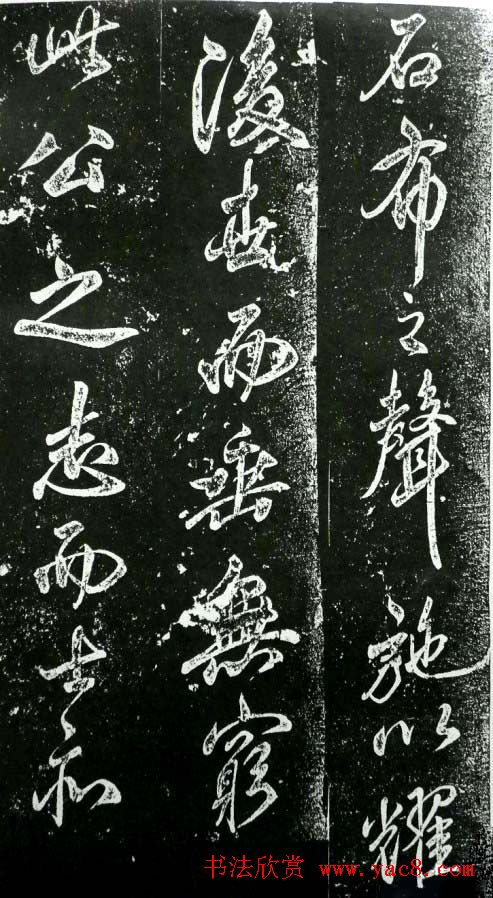 石布之聲施以耀
後世而垂無窮
此公之志而士亦
书法欣赏 www.yac8.com